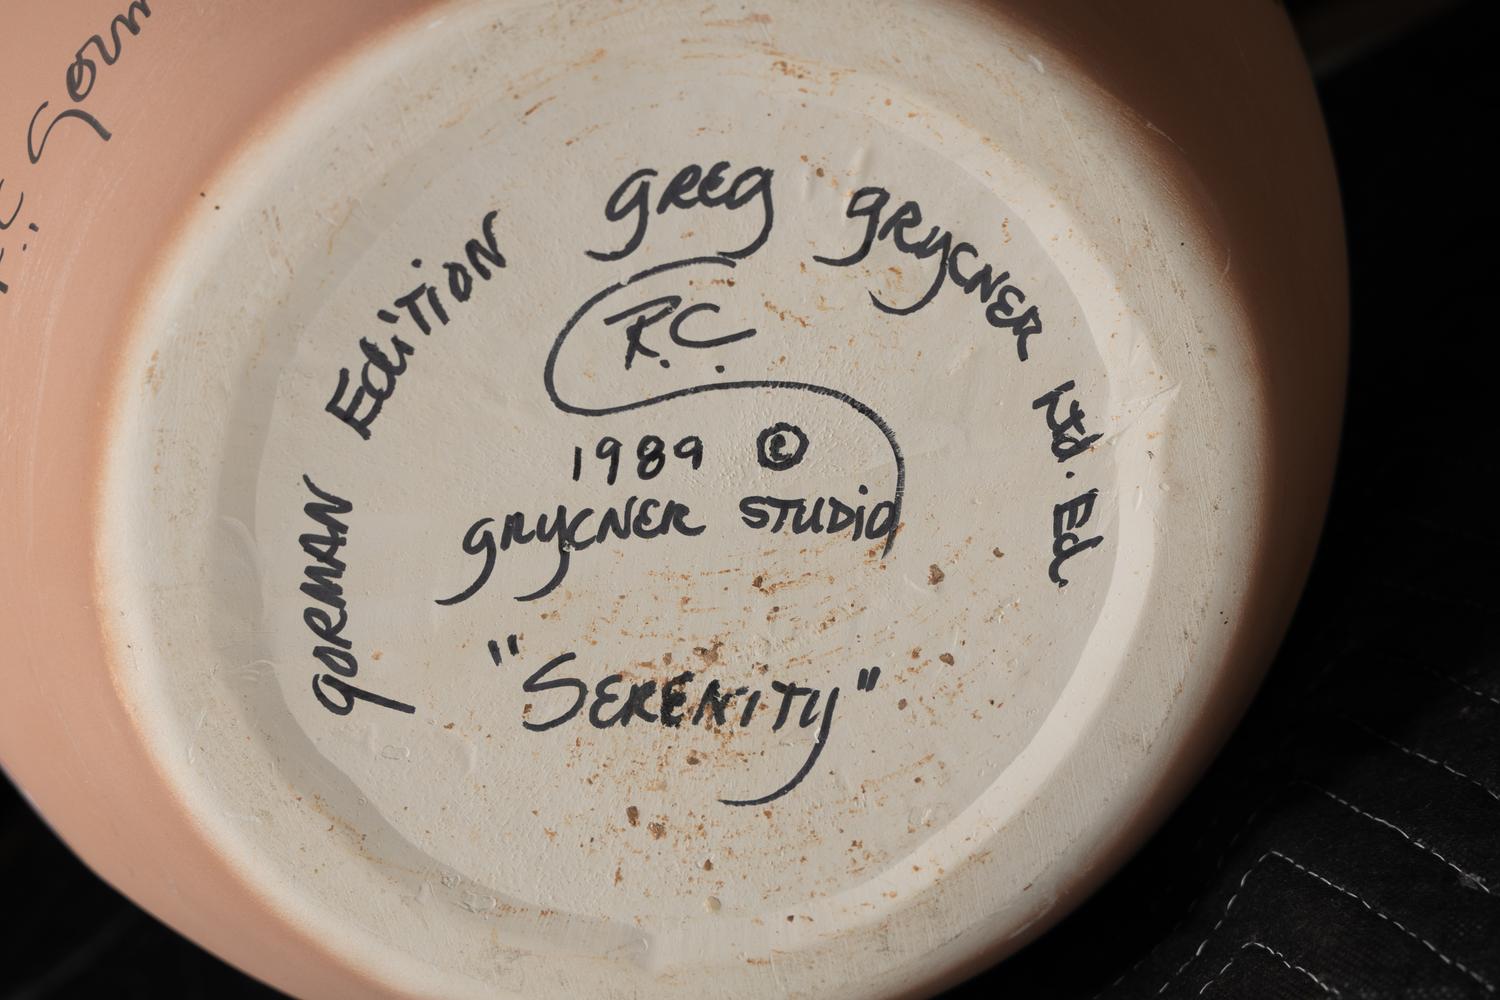 GORMAN EdiTiON GREG GRYCNER Ltd. Ed.
R.C.
1989 ©
GRYCNER STUDIO
"SERENITY"
R.C. Gorm